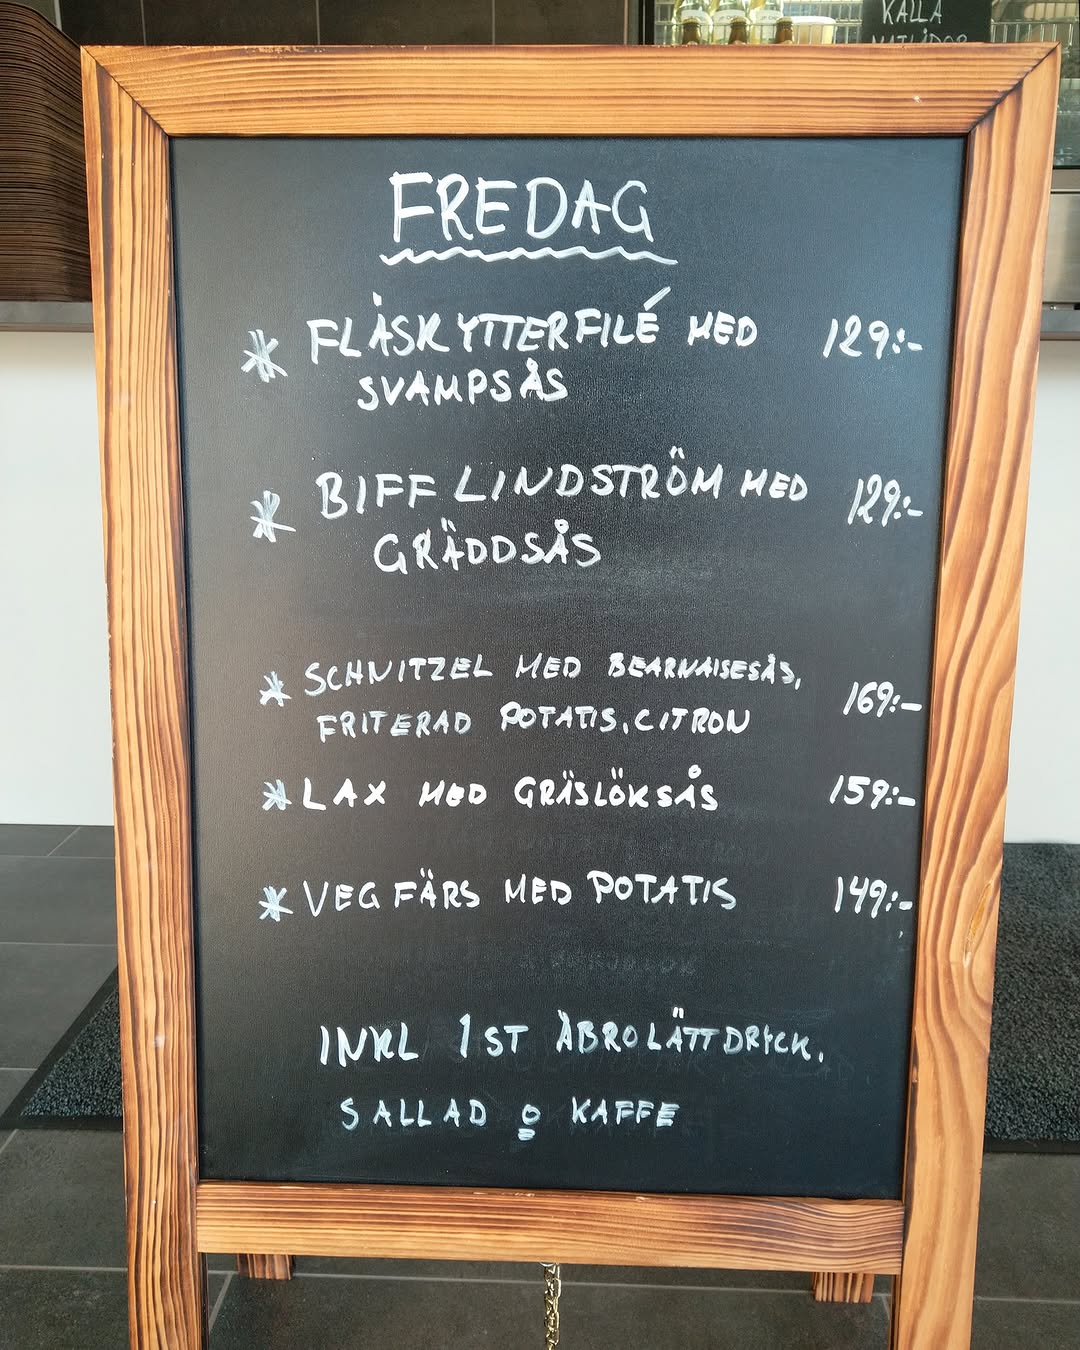 KALLA
MATLÅDOR
FREDAG
* FLÄSKYTTERFILÉ MED 129:-
SVAMPSÅS
* BIFF LINDSTRÖM MED 129:-
GRÄDDSÅS
* SCHNITZEL MED BEARNAISESÅS, 169:-
FRITERAD POTATIS, CITRON
* LAX MED GRÄSLÖKSÅS 159:-
* VEG FÄRS MED POTATIS 149:-
INKL 1 ST ÅBRO LÄTTDRYCK,
SALLAD o KAFFE